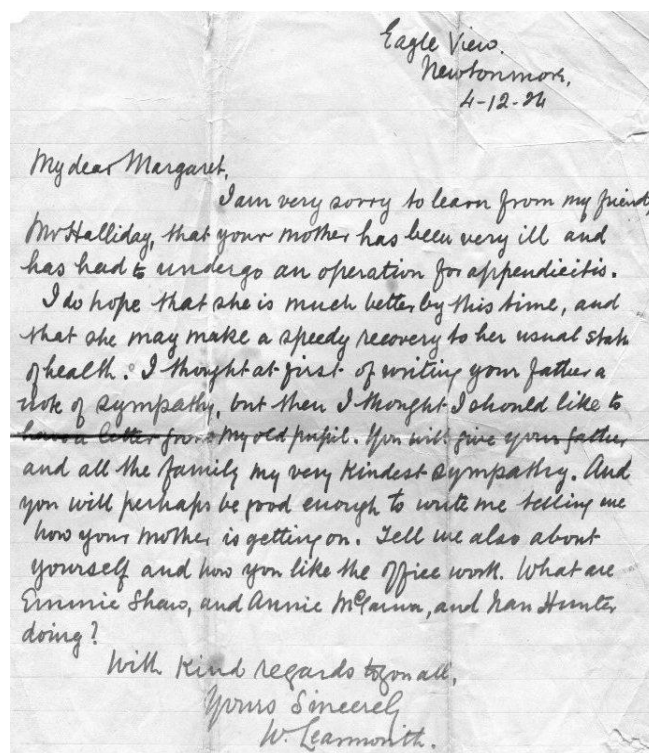 Eagle View.
Newtonmore,
4-12-24
My dear Margaret,
I am very sorry to learn from my friend,
Mr Halliday, that your mother has been very ill and
has had to undergo an operation for appendicitis.
I do hope that she is much better by this time, and
that she may make a speedy recovery to her usual state
of health. I thought at first of writing your father a
note of sympathy, but then I thought I should like to
have a letter from my old pupil. You will give your father
and all the family my very kindest sympathy. And
you will perhaps be good enough to write me telling me
how your mother is getting on. Tell me also about
yourself and how you like the office work. What are
Emmie Shaw, and Annie and Nan Hunter
doing?
With kind regards to you all,
Yours Sincerely
W. Learmonth.